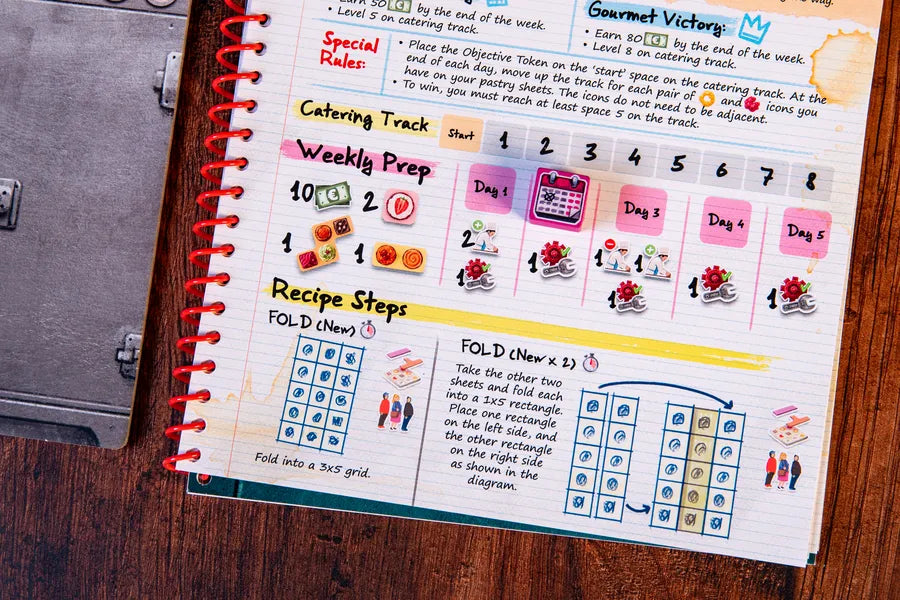 Earn 50 € by the end of the week.
• Level 5 on catering track.
Gourmet Victory:
• Earn 80 € by the end of the week.
• Level 8 on catering track.
Special
Rules:
• Place the Objective Token on the 'start' space on the catering track. At the
end of each day, move up the track for each pair of and icons you
have on your pastry sheets. The icons do not need to be adjacent.
• To win, you must reach at least space 5 on the track.
Catering Track
Start 1 2 3 4 5 6 7 8
Weekly Prep
10 € 2
1 1
Day 1
2
1
1
Day 3
1 1
1
Day 4
1
Day 5
1
Recipe Steps
FOLD (New)
Fold into a 3x5 grid.
FOLD (New x 2)
Take the other two
sheets and fold each
into a 1x5 rectangle.
Place one rectangle
on the left side, and
the other rectangle
on the right side
as shown in the
diagram.